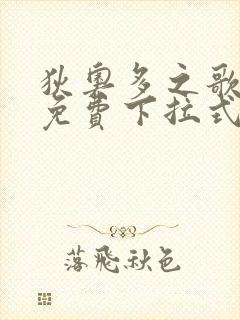 狄奧多之歌
免費下拉式
落飛秋色